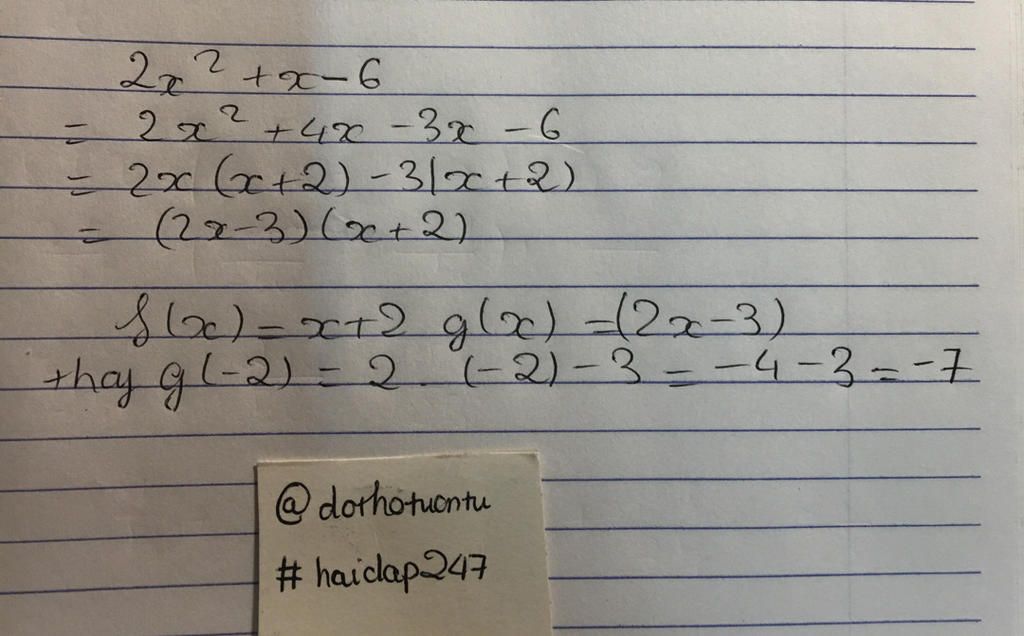 2x² + x - 6
= 2x² + 4x - 3x - 6
= 2x (x+2) - 3(x+2)
= (2x-3)(x+2)
f(x) = x+2 g(x) = (2x-3)
thay g(-2) = 2 . (-2) - 3 = -4 - 3 = -7
@dothotuontu
#haidap247